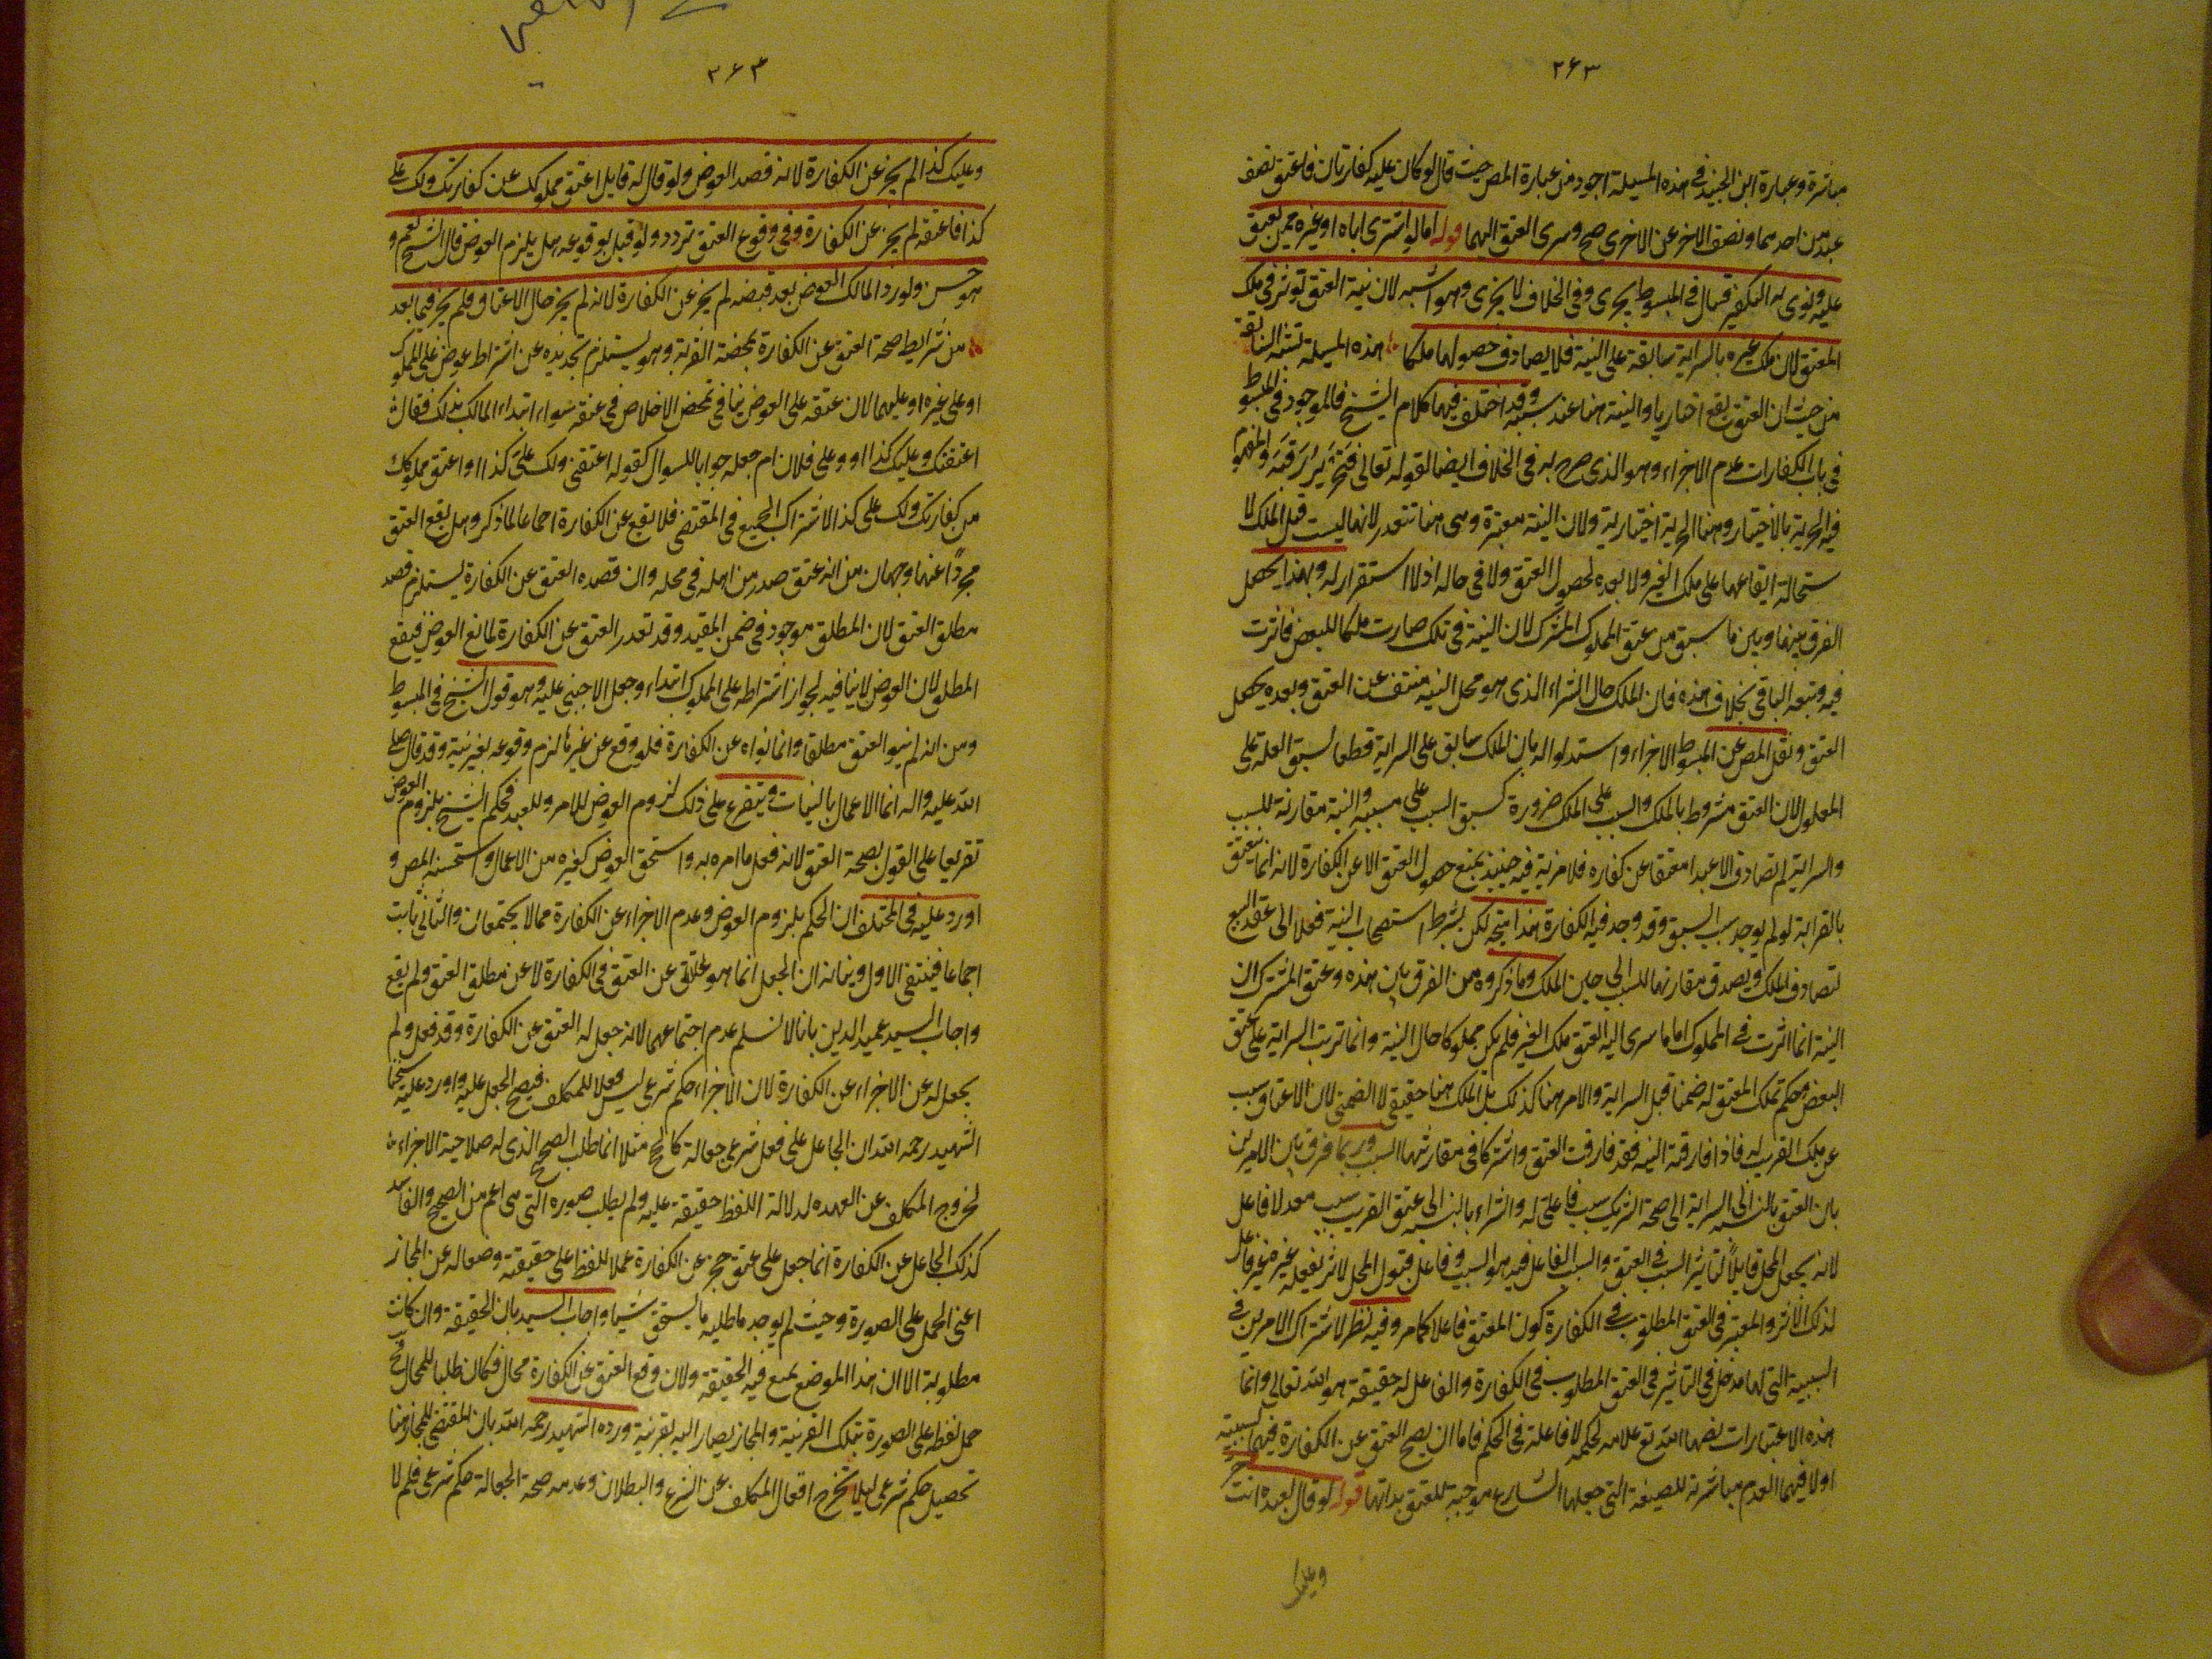 ۲۶۳
مباشرة وعبارة ابن الجنيد فى هذه المسيلة اجود من عبارة المص حيث قال لو كان عليه كفارتان فاعتق نصف
عبد من احدهما ونصف الاخر عن الاخرى صح وسرى العتق اليهما قوله اما لو اشترى اباه او غيره ممن يعتق
عليه ونوى به التكفير قال فى المبسوط يجزى وفى الخلاف لا يجزى وهو اشبه لان نية العتق تؤثر فى ملك
المعتق لا فى ملك غيره فالسراية سابقة على النية فلا يصادف حصولها ملكا هذه المسيلة تشبه السابقة
من حيث ان العتق يقع اختياريا والنية هنا عند سببه وقد اختلف فيها كلام الشيخ فالموجود فى المبسوط
فى باب الكفارات عدم الاجزاء وهو الذى صرح به فى الخلاف ايضا لقوله تعالى فتحرير رقبة والمفهوم
فيه الحرية بالاختيار وهنا الحرية اختيارية ولان النية معتبرة وهى هنا تتعذر لانها ليست قبل الملك لا
ستحالة ايقاعها على ملك الغير ولا بعده لحصول العتق ولا فى حاله اذ لا استقرار له وبهذا يحصل
الفرق بينها وبين ما سبق من عتق المملوك المشترك لان النية فى تلك صارت ملكا للبعض فاثرت
فيه وتبعه الباقى بخلاف هذه فان الملك حال الشراء الذى هو محل النية منتف عن العتق وبعده يحصل
العتق ونقل المص عن المبسوط الاجزاء واستدلوا له بان الملك سابق على السراية قطعا لسبق العلة على
المعلول لان العتق مشروط بالملك والسبب على الملك ضرورة كسبق السبب على مسببه والنية مقارنة للسبب
والسراية لم تصادف الا عبدا معتقا عن كفارة فلا مزية فيه حينئذ يمنع حصول العتق الا عن الكفارة لانه انما ينعتق
بالقرابة لو لم يوجد سبب اسبق وقد وجد فيه الكفارة هذا متجه لكن بشرط استصحاب النية فعلا الى عقد البيع
لتصادف الملك ويصدق مقارنتها للسبب الى حين الملك وما ذكروه من الفرق بين هذه وعتق المشترك ان
النية انما اثرت فى المملوك اما ما سرى اليه العتق ملك الغير فلم يكن مملوكا حال النية وانما ترتب السراية على عتق
البعض وحكم بملك المعتق له ضمنا قبل السراية والامر هنا كذلك بل الملك هنا حقيقى لا الضمنى لان الاعتاق سبب
عن ملك القريب له فاذا فارقته النية فقد فارقت العتق واشتركا فى مقارنتها السبب وربما فرق بين الامرين
بان العتق بالنسبة الى السراية الى حصة الشريك سبب فاعلى له والشراء بالنسبة الى عتق القريب سبب معد لا فاعل
لانه يجعل المحل قابلا لتاثير السبب فى العتق والسبب الفاعل فيه هو النسب وفاعل قبول المحل لاثر يفعله غيره غير فاعل
لذلك الاثر والمعتبر فى العتق المطلوب فى الكفارة كون المعتق فاعلا كما مر وفيه نظر لاشتراك الامرين فى
السببية التى لها مدخل فى التاثير فى العتق المطلوب فى الكفارة والفاعل له حقيقة هو الله تعالى وانما
هذه الاعتبارات نصبها الله تع علامة لحكمه لا فاعلة فى الحكم فاما ان يصح العتق عن الكفارة فيهما لسببيته
او لا فيهما لعدم مباشرته للصيغة التى جعلها الشارع موجبة للعتق بذاتها قوله لو قال لعبده انت حر
وعليك
۲۶۴
وعليك كذا لم يجز عن الكفارة لانه قصد العوض ولو قال له قايل اعتق مملوكك عن كفارتك ولك على
كذا فاعتقه لم يجز عن الكفارة وفى وقوع العتق تردد ولو قيل بوقوعه هل يلزم العوض قال الشيخ نعم و
هو حسن ولو رد المالك العوض بعد قبضه لم يجز عن الكفارة لانه لم يجز حال الاعتاق فلم يجز فيما بعد
من شرايط صحة العتق عن الكفارة تمحضه القربة وهو يستلزم تجريده عن اشتراط عوض على المملوك
او على غيره او عليهما لان عتقه على العوض ينافى تمحض الاخلاص فى عتقه سواء ابتداء المالك بذلك فقال
اعتقتك وعليك كذا او وعلى فلان ام جعله جوابا للسوال كقوله اعتقنى ولك على كذا او اعتق مملوكك
من كفارتك ولك على كذا لاشتراك الجميع فى المقتضى فلا يقع عن الكفارة اجماعا لما ذكر وهل يقع العتق
مجردا عنها وجهان من انه عتق صدر من اهله فى محله وان قصده العتق عن الكفارة يستلزم قصد
مطلق العتق لان المطلق موجود فى ضمن المقيد وقد تعذر العتق عن الكفارة لمانع العوض فيقع
المطلق لان العوض لا ينافيه لجواز اشتراطه على المملوك ابتداء وجعل الاجنبى عليه وهو قول الشيخ فى المبسوط
ومن انه لم ينو العتق مطلقا وانما نواه عن الكفارة فلو وقع عن غيرها لزم وقوعه بغير نية وقد قال صلى
الله عليه واله انما الاعمال بالنيات ويتفرع على ذلك لزوم العوض للامر وللعبد فحكم الشيخ بلزوم العوض
تفريعا على القول بصحة العتق لانه فعل ما امره به واستحق العوض كغيره من الاعمال واستحسنه المص و
اورد عليه فى المختلف ان الحكم بلزوم العوض وعدم الاجزاء عن الكفارة مما لا يجتمعان والثانى ثابت
اجماعا فينتفى الاول وبيانه ان الجعل انما هو على العتق عن الكفارة لا عن مطلق العتق ولم يقع
واجاب السيد عميد الدين بانا لا نسلم عدم اجتماعهما لانه جعل له العتق عن الكفارة وقد فعل ولم
يجعل له عن الاجزاء عن الكفارة لان الاجزاء حكم شرعى ليس فعلا للمكلف فيصح الجعل عليه واورد عليه شيخنا
الشهيد رحمه الله ان الجاعل على فعل شرعى جعالة كالحج مثلا انما طلب الصحيح الذى له صلاحية الاجزاء
لخروج المكلف عن العهدة لدلالة اللفظ حقيقة عليه ولم يطلب صورة التى هى اعم من الصحيح والفاسد
كذلك الجاعل عن الكفارة انما جعل على عتق مجز عن الكفارة عملا للفظ على حقيقته وصونا له عن المجاز
اعنى الحمل على الصورة وحيث لم يوجد ما طلبه ما يستحق شيئا واجاب السيد بان الحقيقة وان كانت
مطلوبة الا ان هذا الموضع يمنع فيه الحقيقة ولان وقوع العتق عن الكفارة محال فكان طلبا للمحال فح
حمل لفظه على الصورة بتلك القرينة والمجاز يصار اليه بقرينة ورده الشهيد رحمه الله بان المقتضى للمجاز هنا
تحصيل حكم شرعى ليلا تخرج افعال المكلف عن الشرع والبطلان وعدمه صحة الجعالة حكم شرعى فلم لا